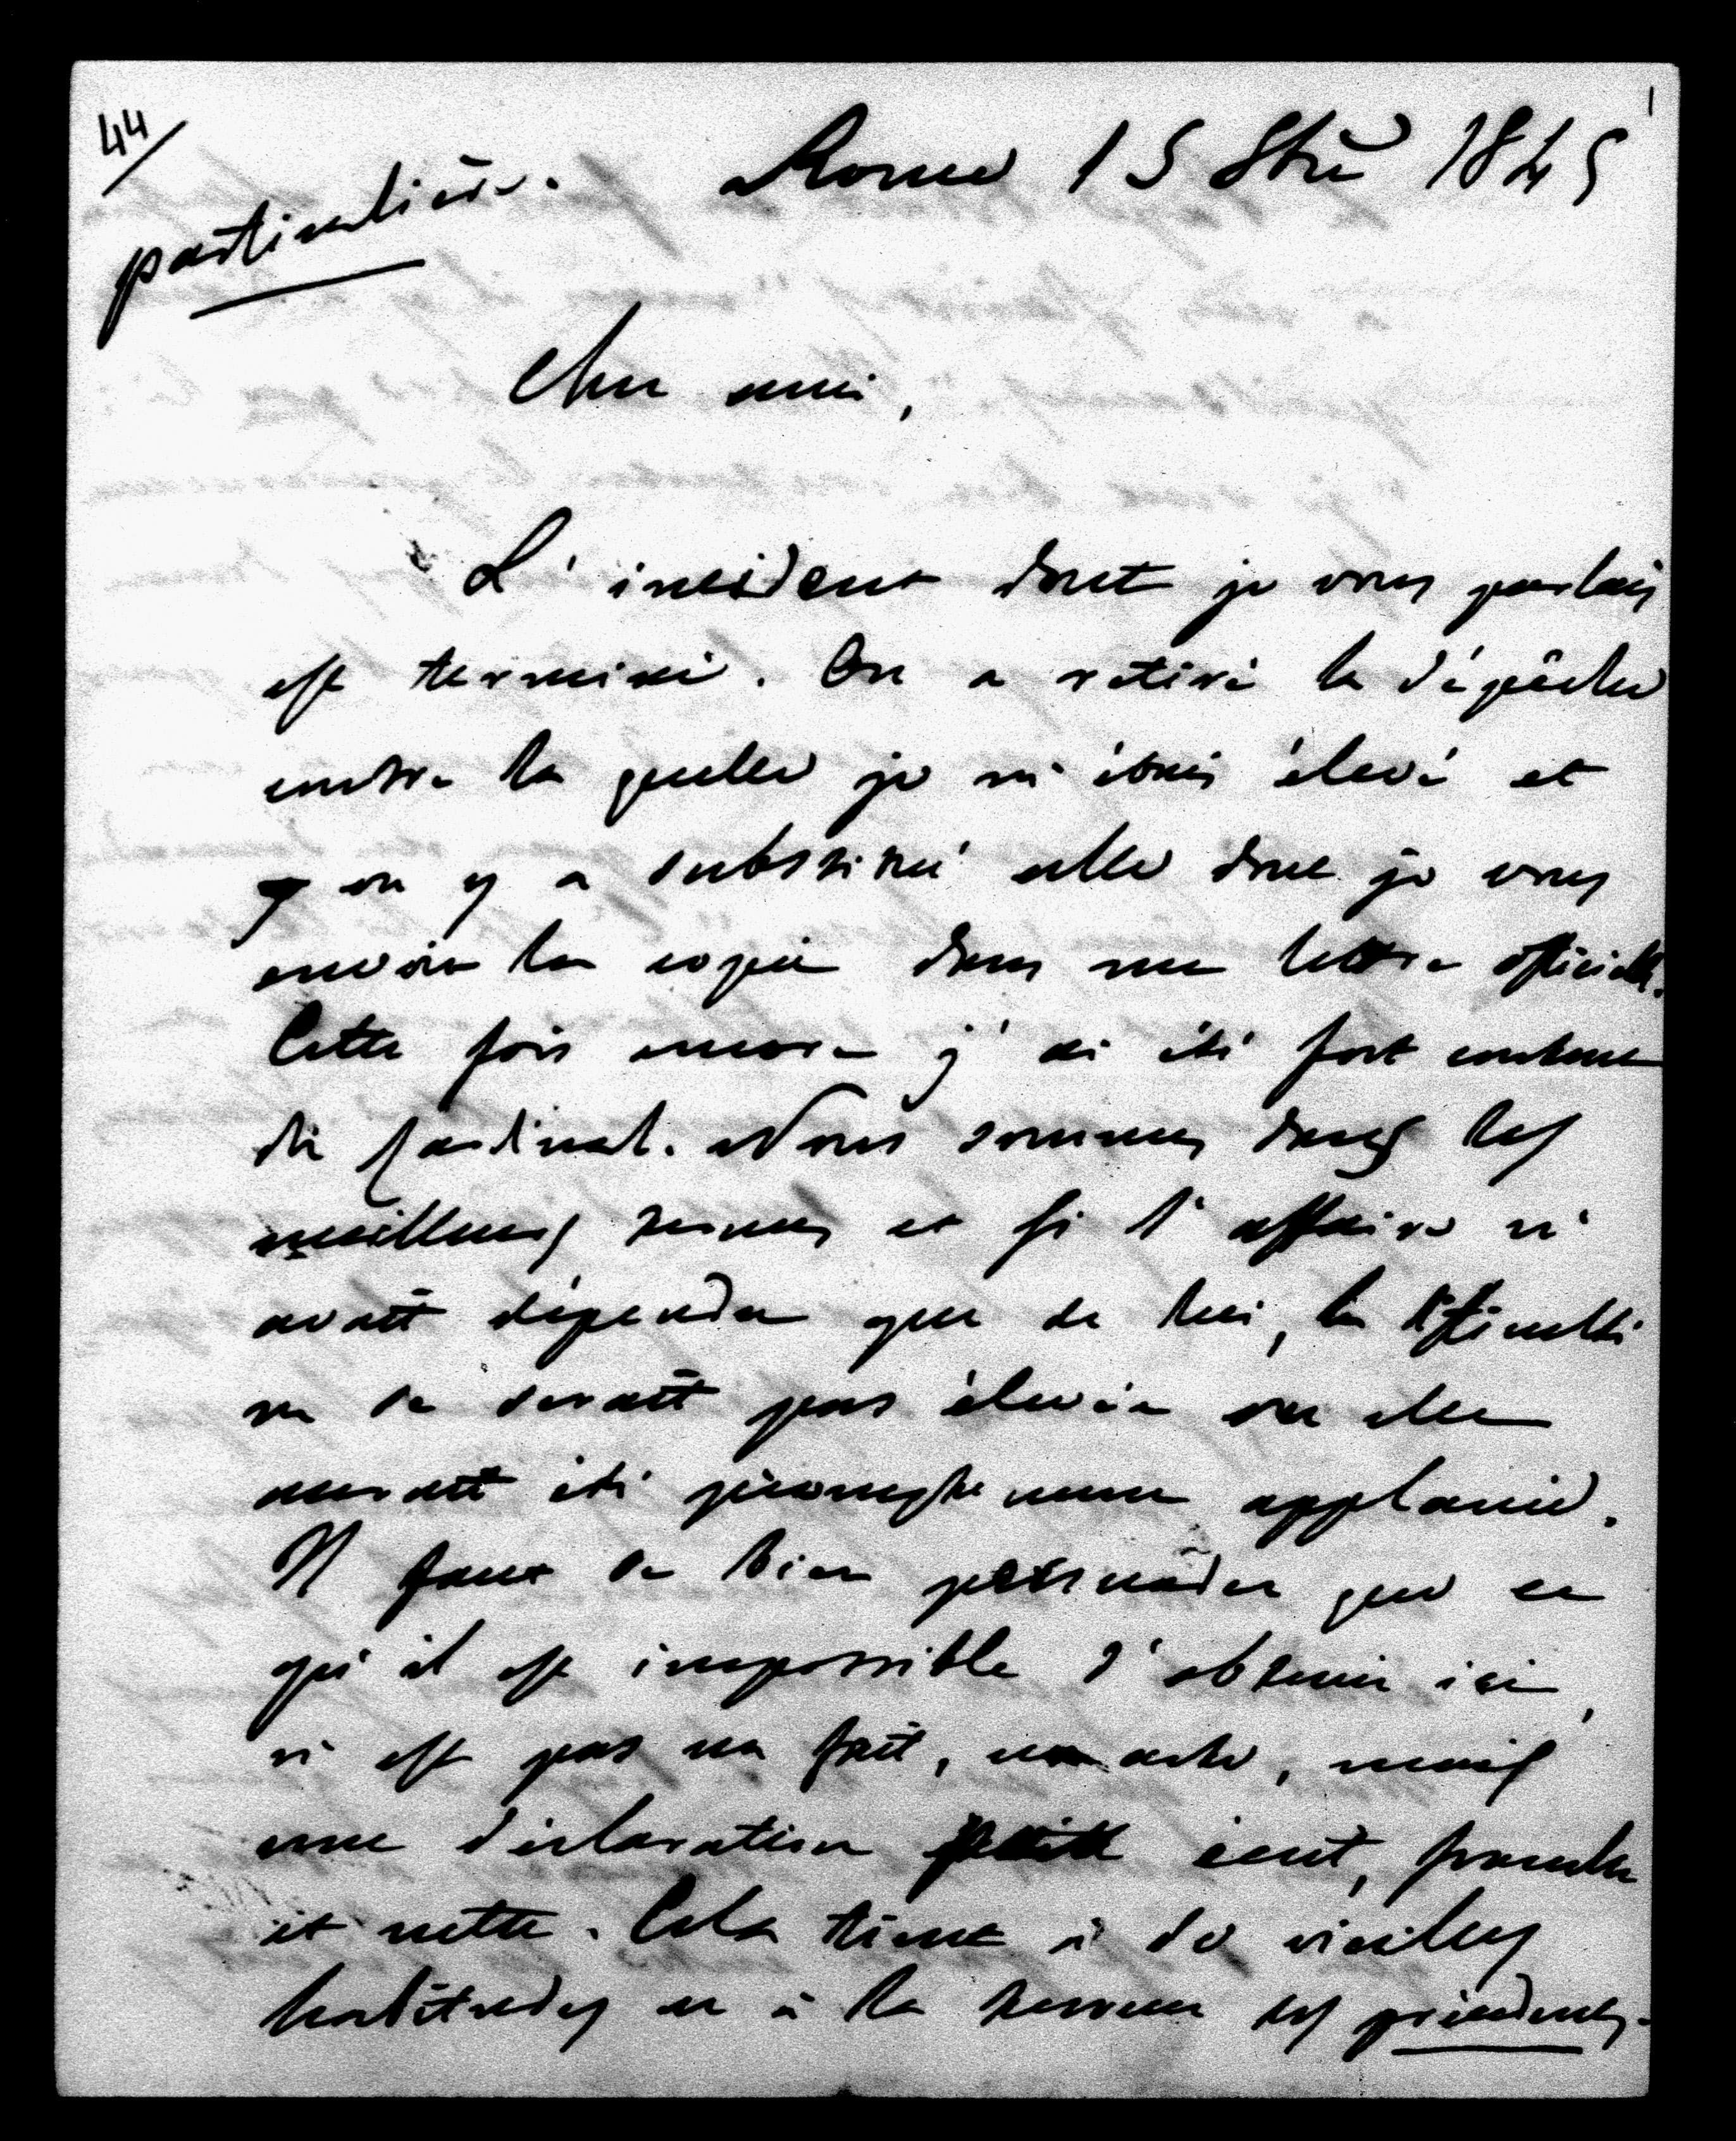 44
particulière.
Rome 15 8bre 1845
1
Cher ami,
L'incident dont je vous parlais
est terminé. On a retiré la dépêche
contre la quelle je m'étais élevé et
on y a substitué celle dont je vous
envoie la copie dans ma lettre officielle.
Cette fois encore j'ai été fort content
du Cardinal. Nous sommes dans les
meilleurs termes et si l'affaire n'
avait dépendu que de lui, la difficulté
ne se serait pas élevée ou elle
aurait été promptement applanie.
Il faut se bien persuader que ce
qu'il est impossible d'obtenir ici,
n'est pas un fait, un acte, mais
une déclaration écrite, franche
et nette. Cela tient à de vieilles
habitudes et à la terreur des précédents.